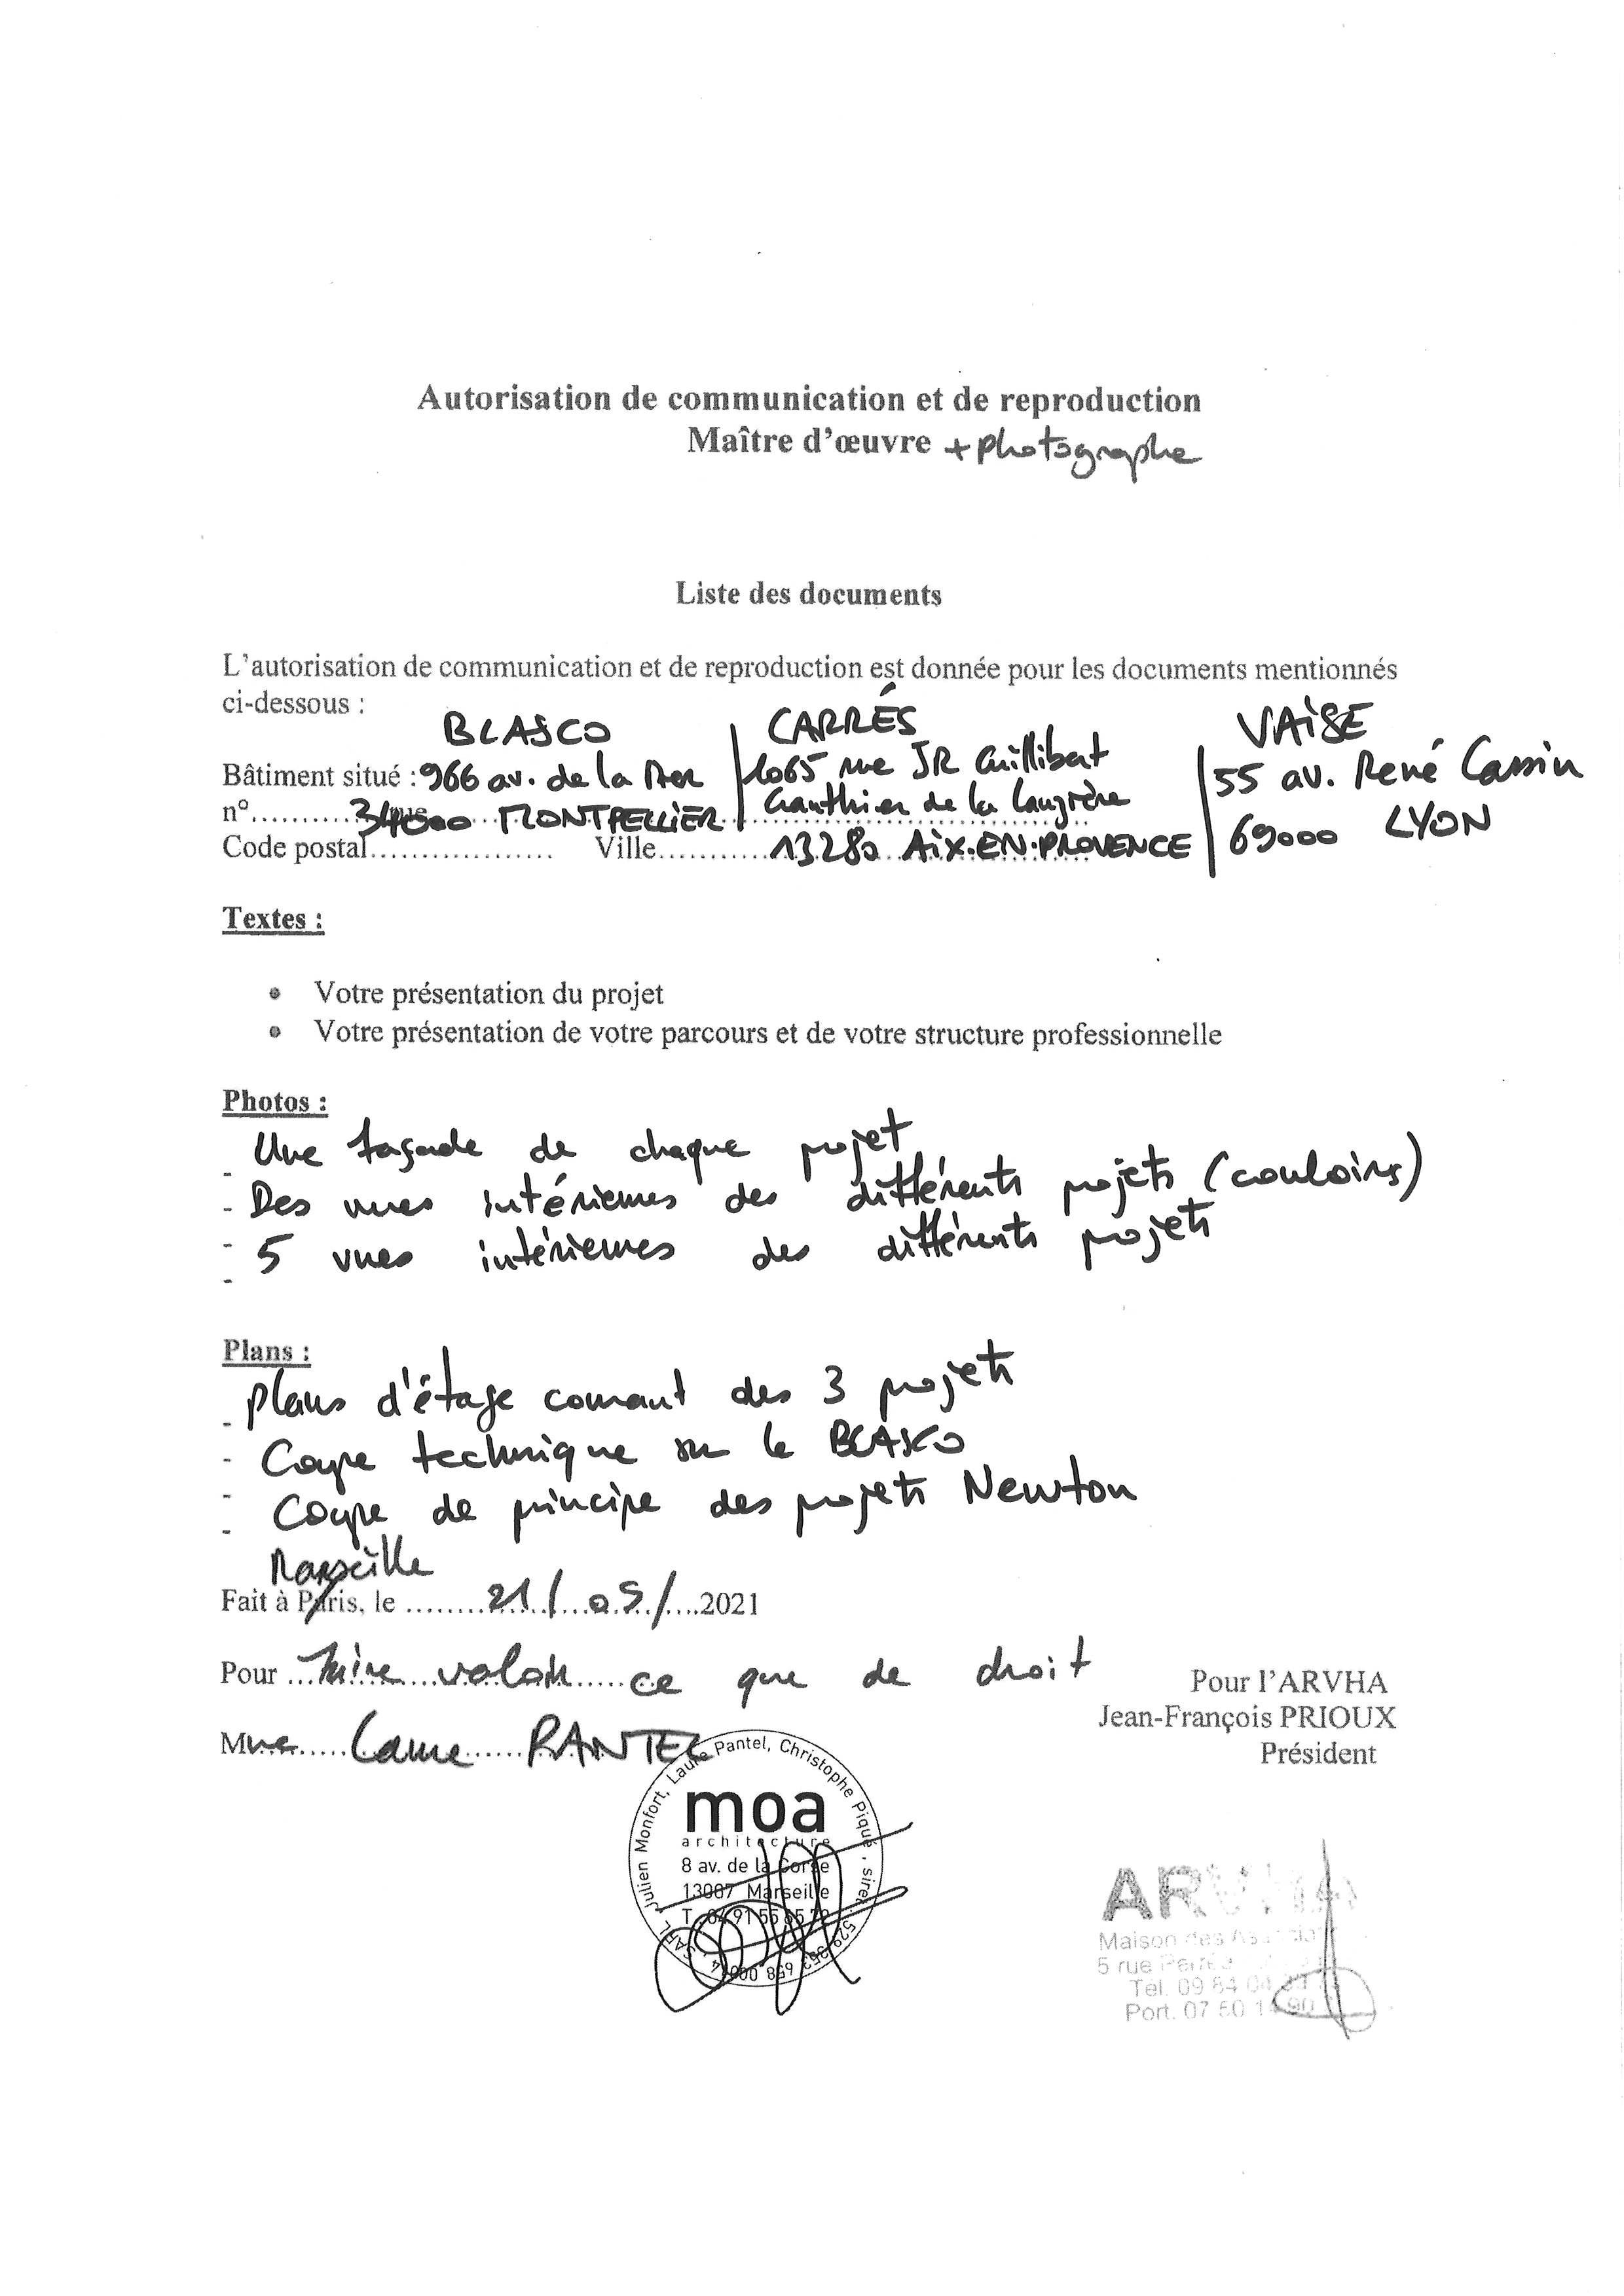 Autorisation de communication et de reproduction
Maître d'œuvre + photographe
Liste des documents
L'autorisation de communication et de reproduction est donnée pour les documents mentionnés
ci-dessous :
BLASCO CARRÉS VAiSE
Bâtiment situé : 966 av. de la Mer 1065 rue JR Guillibert 55 av. René Cassin
n° 34000 MONTPELLiER Gauthier de la Lauzière 69000 LYON
Code postal Ville 13280 AiX.EN.PROVENCE
Textes :
• Votre présentation du projet
• Votre présentation de votre parcours et de votre structure professionnelle
Photos :
- Une façade de chaque projet
- Des vues intérieures des différents projets (couloirs)
- 5 vues intérieures des différents projets
-
Plans :
- plans d'étage courant des 3 projets
- Coupe technique sur le BLASCO
- Coupe de principe des projets Newton
-
Marseille
Fait à Paris, le 21/05/2021
Pour faire valoir ce que de droit
Mme Laure PANTEL
Pour l'ARVHA
Jean-François PRIOUX
Président
SARL Julien Monfort, Laure Pantel, Christophe Piqué, siret
moa
architecture
8 av. de la Corse
13007 Marseille
ARVHA
Maison des
5 rue
Tel. 09 84 04
Port. 07 50